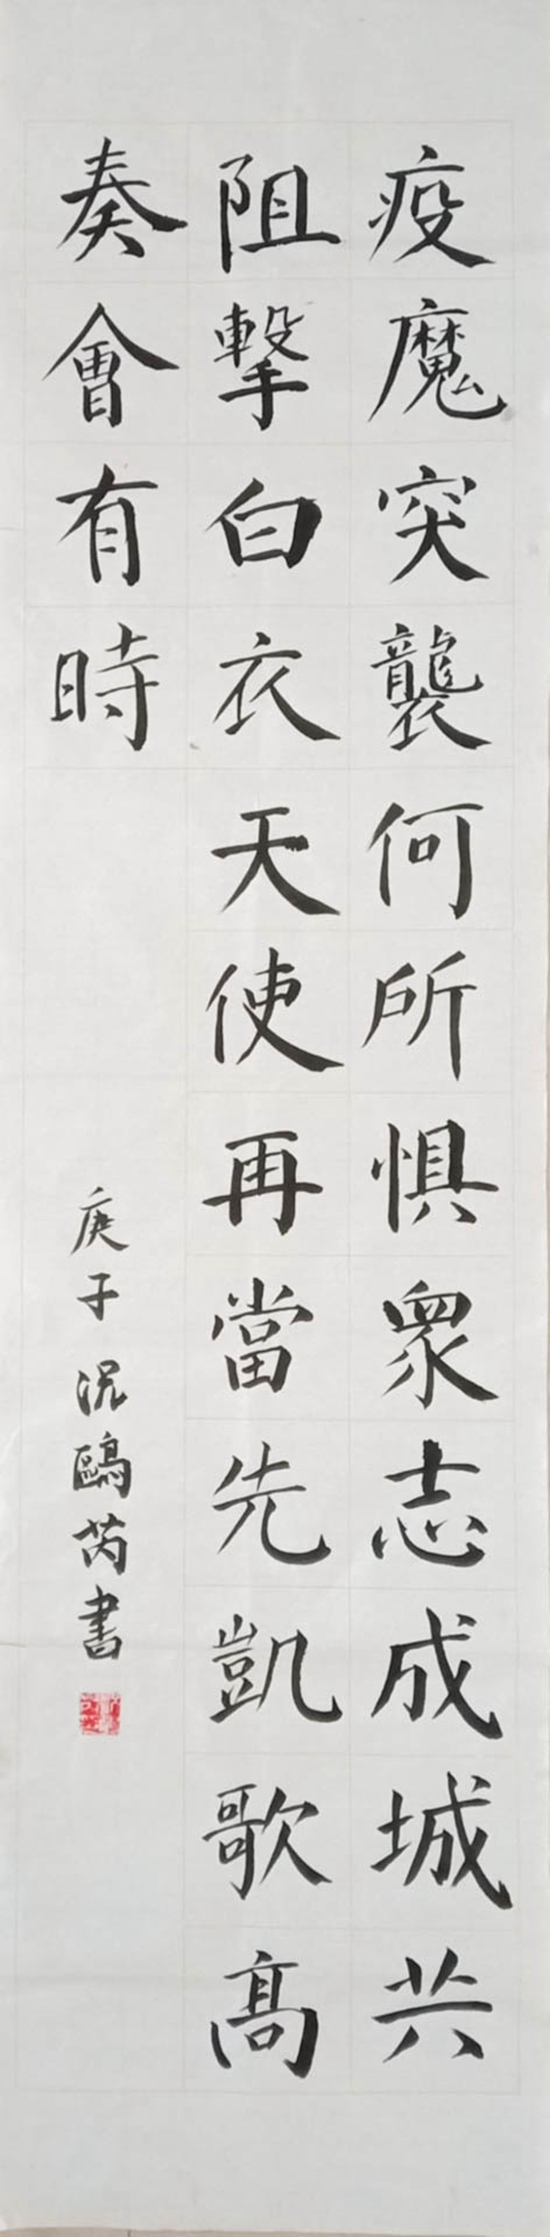 疫魔突襲何所惧衆志成城共
阻擊白衣天使再當先凱歌高
奏會有時
庚子沉鷗芮書